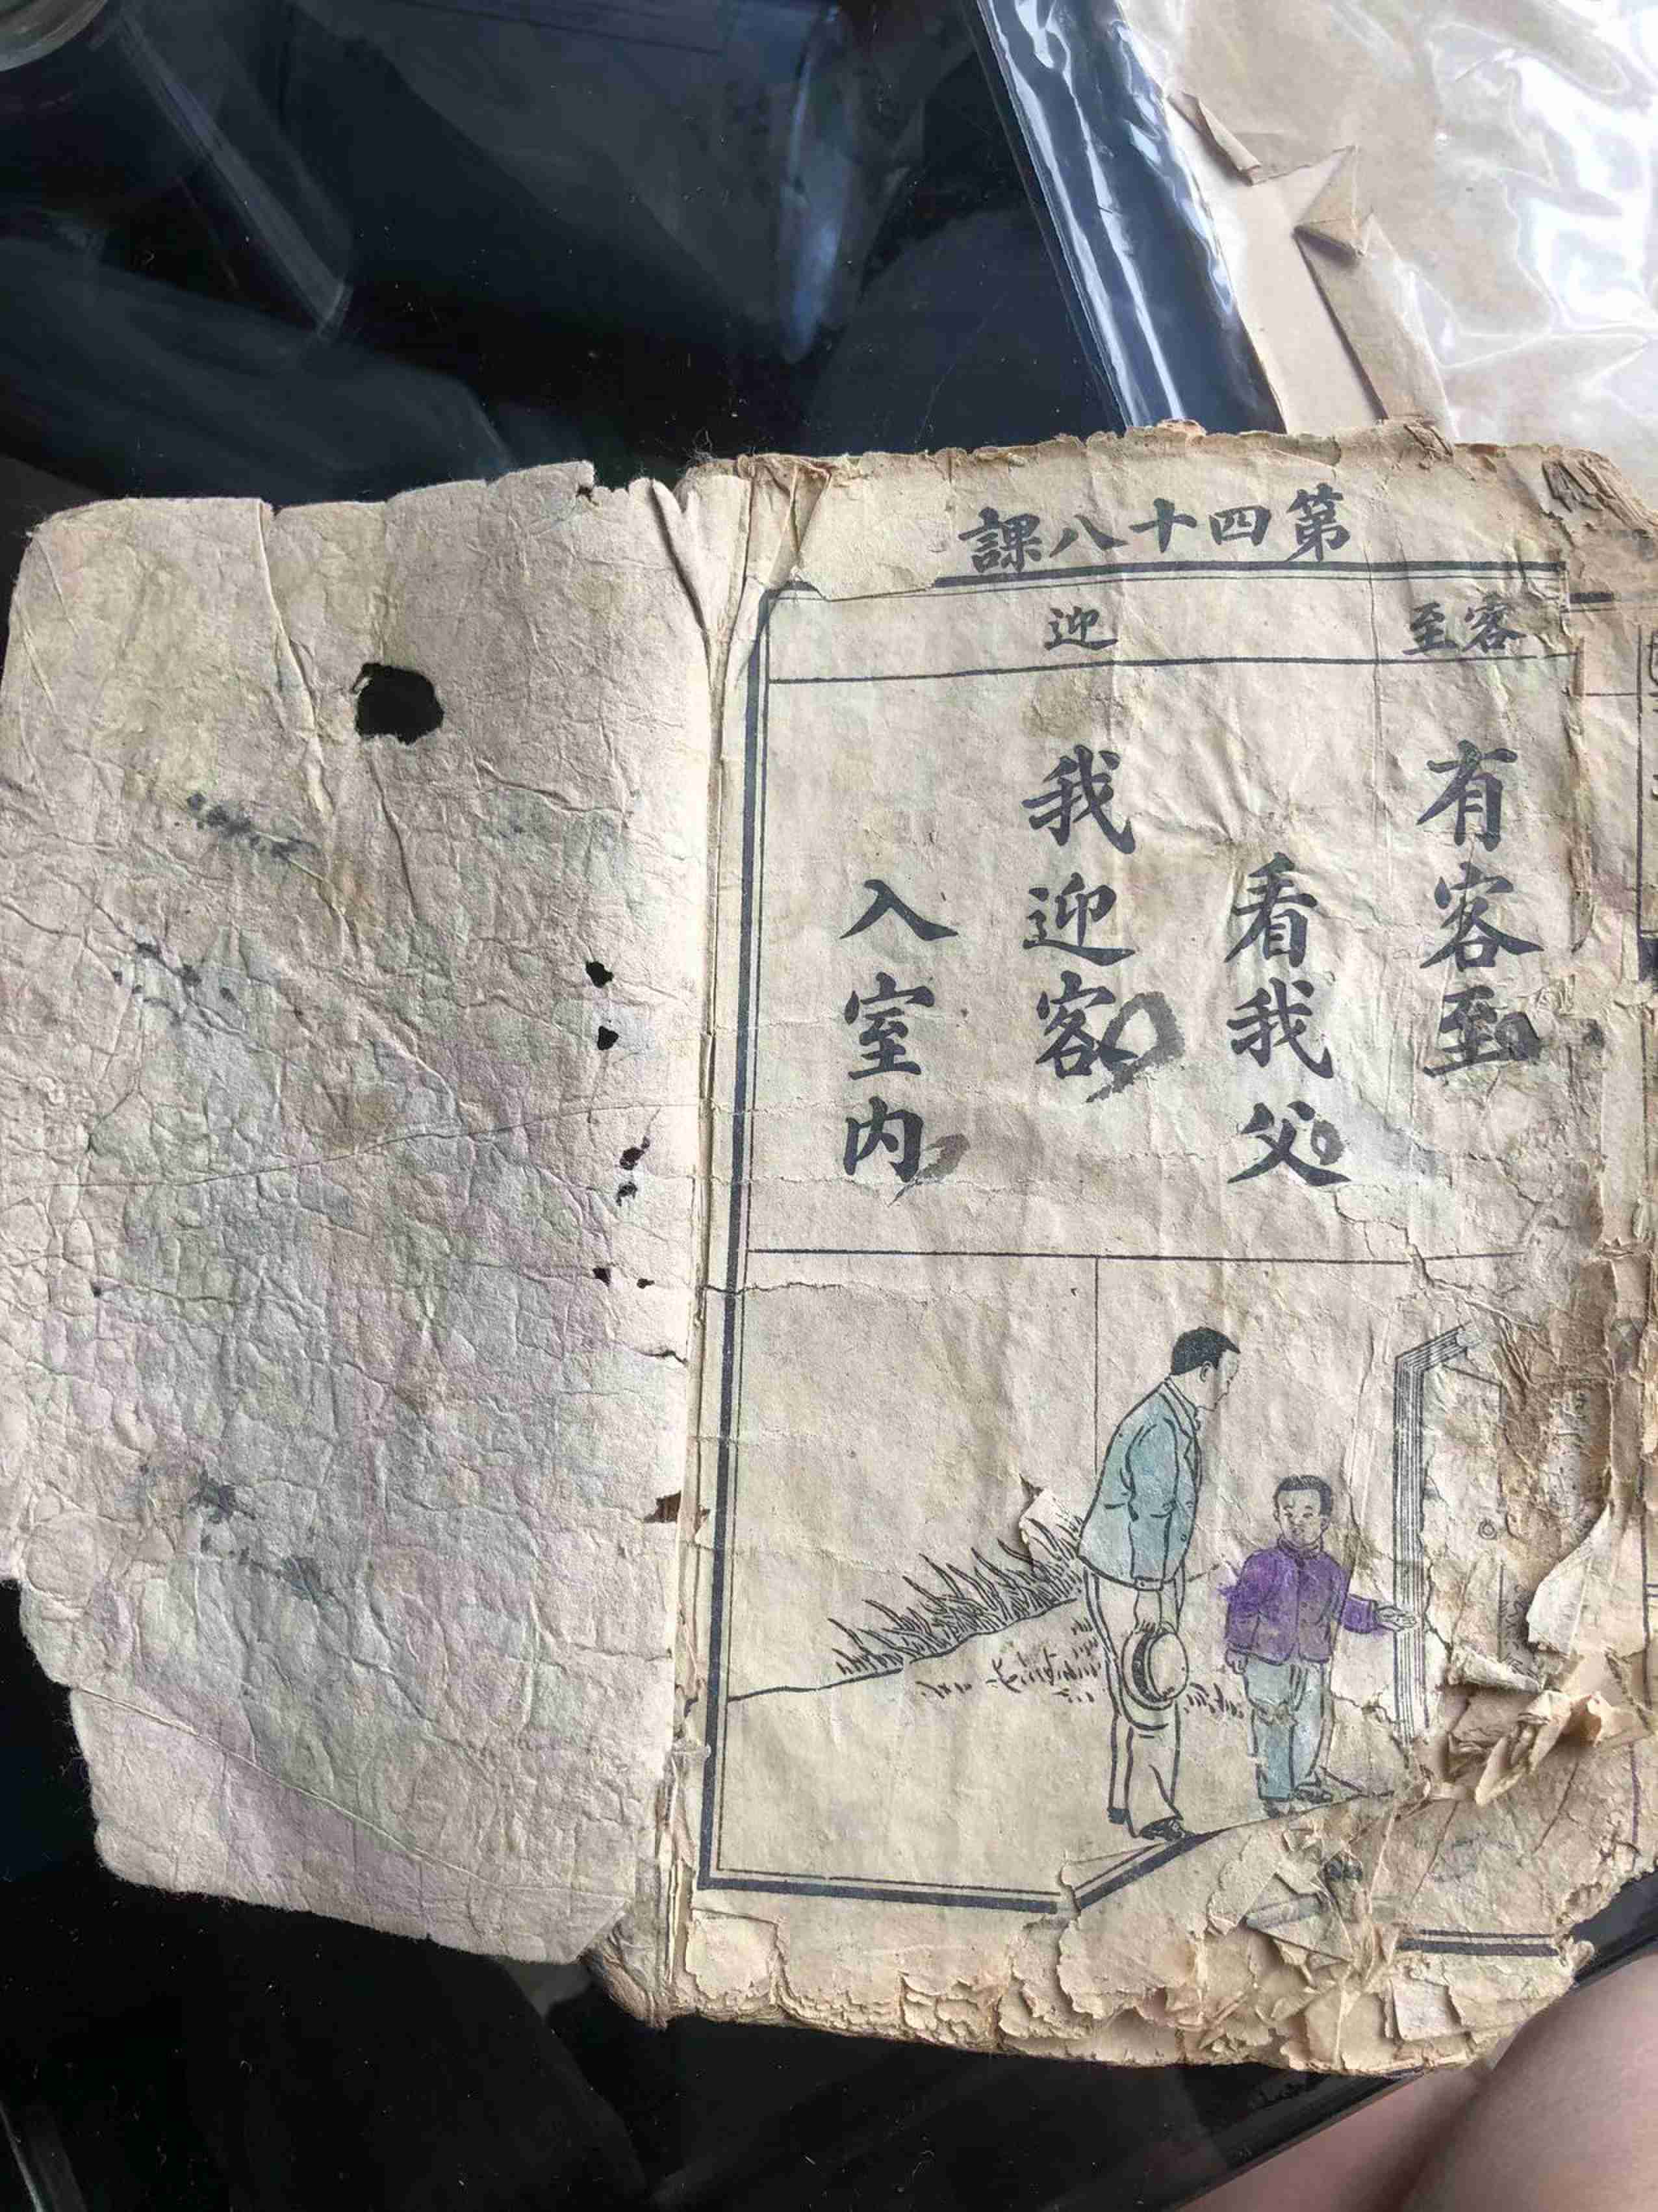 第四十八課
客至
迎
有客至
看我父
我迎客
入室內